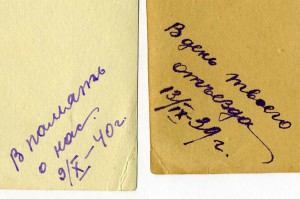 В память
о нас.
9/X – 40 г.
В день твоего
отъезда
13/IX – 39 г.